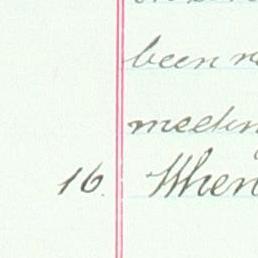 been
meeting
16. When